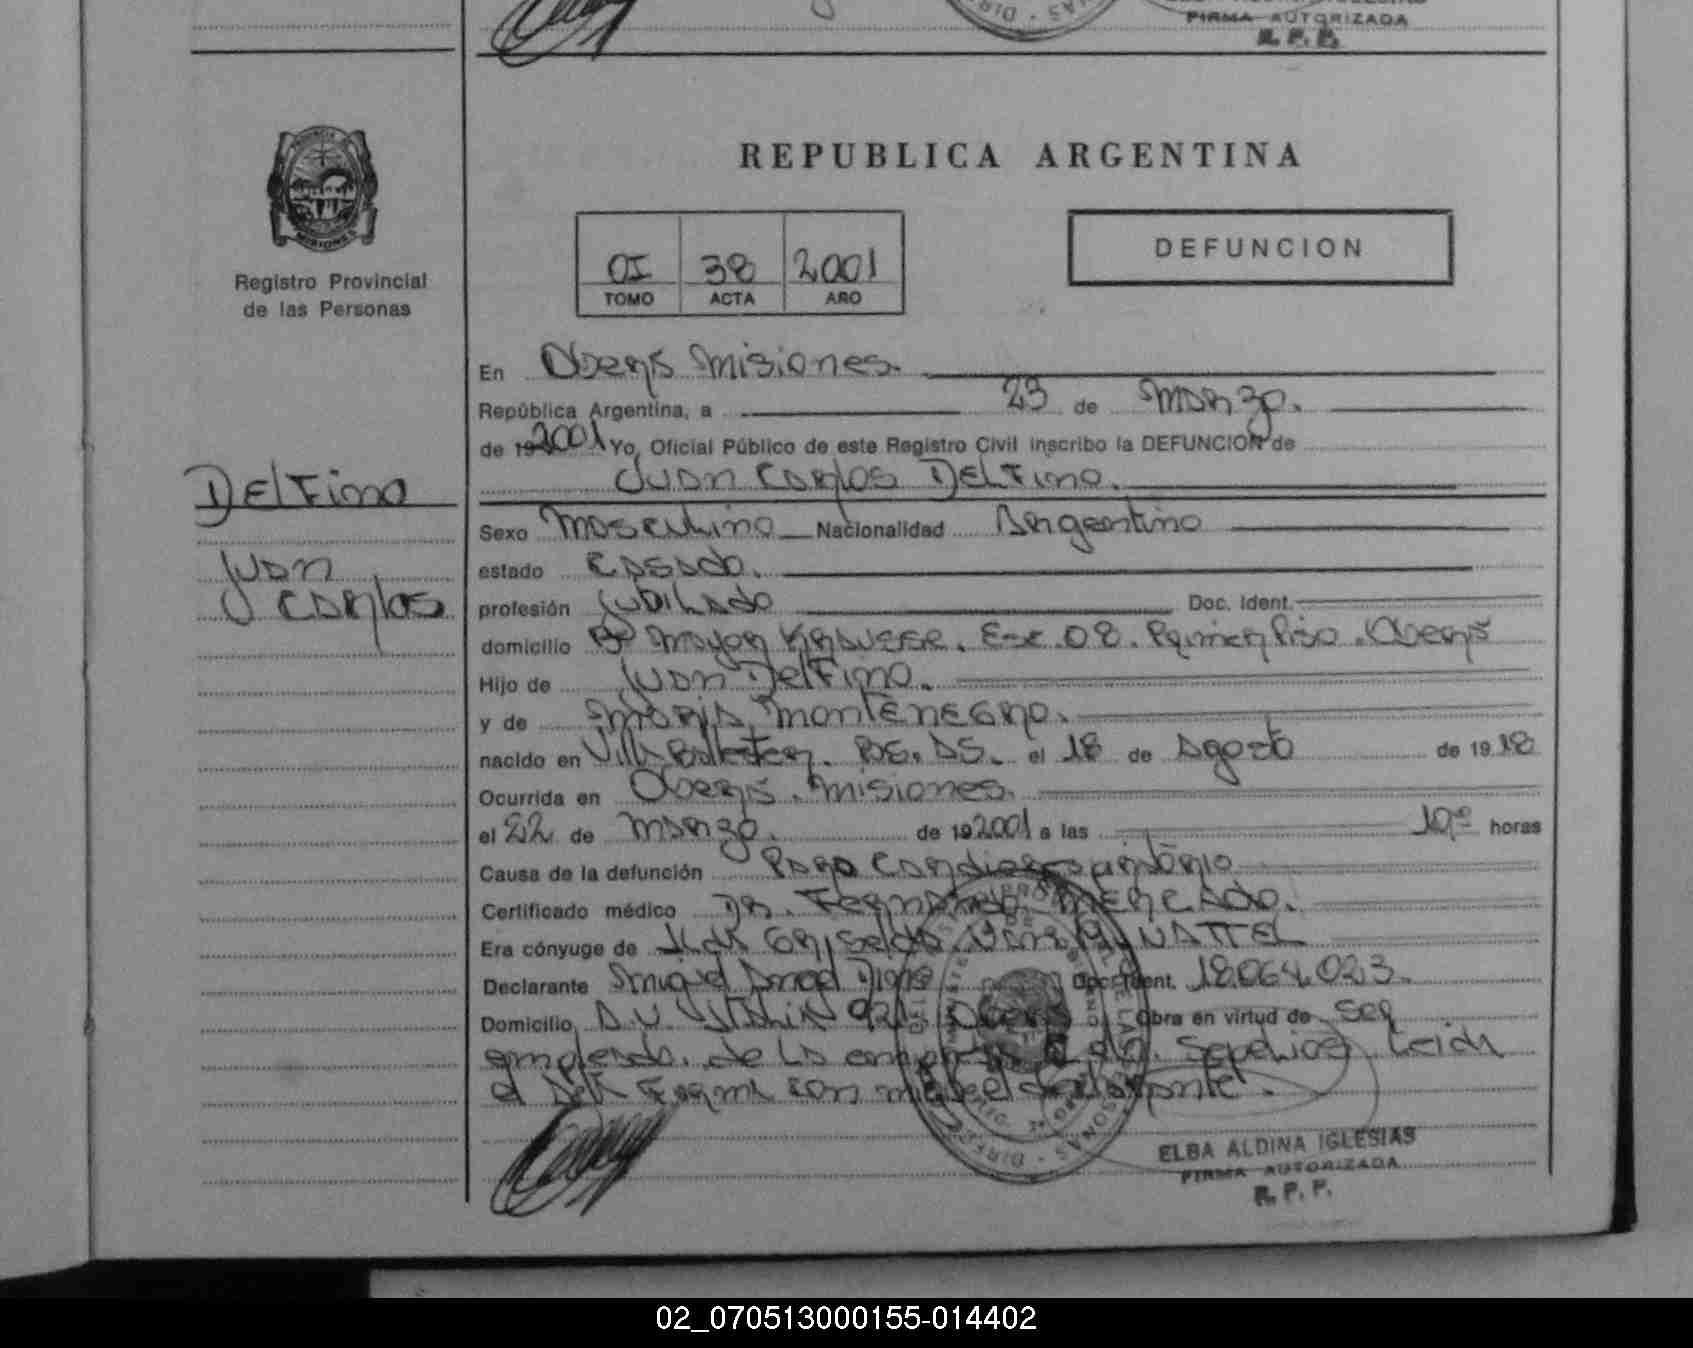 FIRMA AUTORIZADA
R. P. P.
PROVINCIA
MISIONES
Registro Provincial
de las Personas
REPUBLICA ARGENTINA
OI 38 2001
TOMO ACTA AÑO
DEFUNCION
En Oberá Misiones.
República Argentina, a 23 de Marzo.
de 19 2001 Yo, Oficial Público de este Registro Civil inscribo la DEFUNCION de
Juan Carlos Delfino.
Delfino
Juan
Carlos
Sexo Masculino Nacionalidad Argentino
estado Casado.
profesión Jubilado Doc. Ident.
domicilio Bº Mayor Krausse. Esc. 08. Primer Piso. Oberá
Hijo de Juan Delfino.
y de Maria Montenegro.
nacido en Villa Ballester. BS. AS. el 18 de Agosto de 19 18
Ocurrida en Oberá. Misiones.
el 22 de Marzo. de 19 2001 a las 10 horas
Causa de la defunción Paro Cardiorespiratorio
Certificado médico Dr. Fernando Mercado.
Era cónyuge de Griselda NATTEL
Declarante Miguel Doc. Ident. 18.064.023.
Domicilio Oberá Obra en virtud de ser
empleado. de la empresa Sepelios Leida
el Acta Firma con mi el declarante.
ELBA ALDINA IGLESIAS
FIRMA AUTORIZADA
R. P. P.
02_070513000155-014402